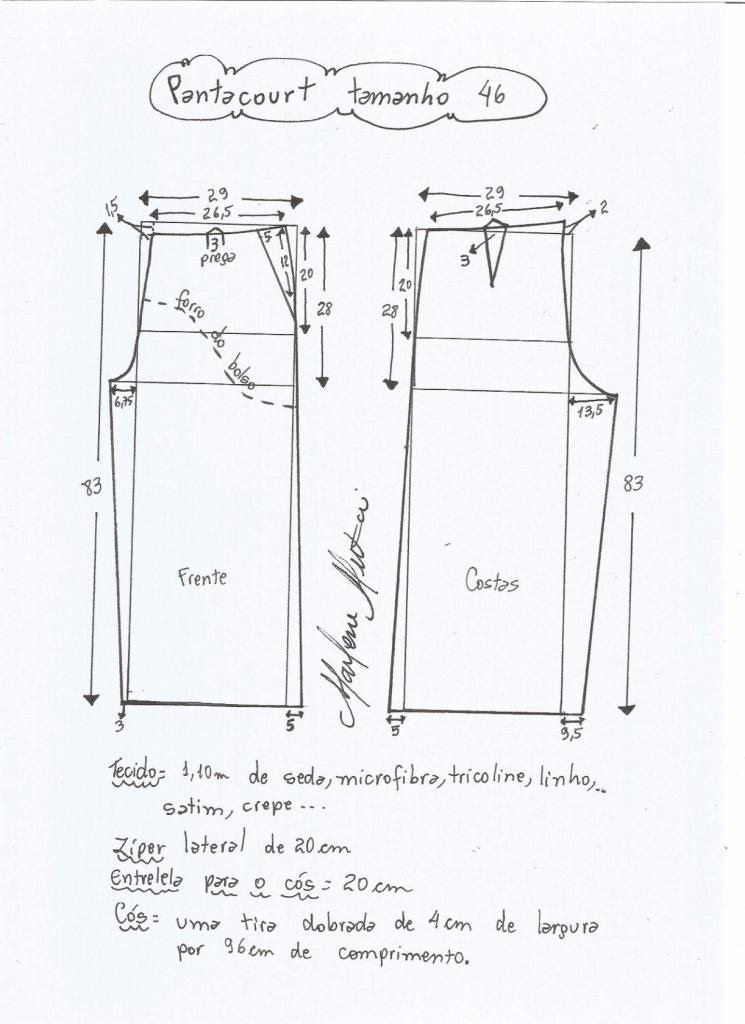 Pantacourt tamanho 46
29
26,5
1,5
3
prega
5
12
20
28
forro do bolso
6,75
83
Frente
3
5
Marlene Mukai
29
26,5
2
3
20
28
13,5
83
Costas
5
9,5
Tecido= 1,10m de seda, microfibra, tricoline, linho,..
satim, crepe...
Zíper lateral de 20cm
Entrelela para o cós= 20cm
Cós= uma tira dobrada de 4cm de largura
por 96cm de comprimento.